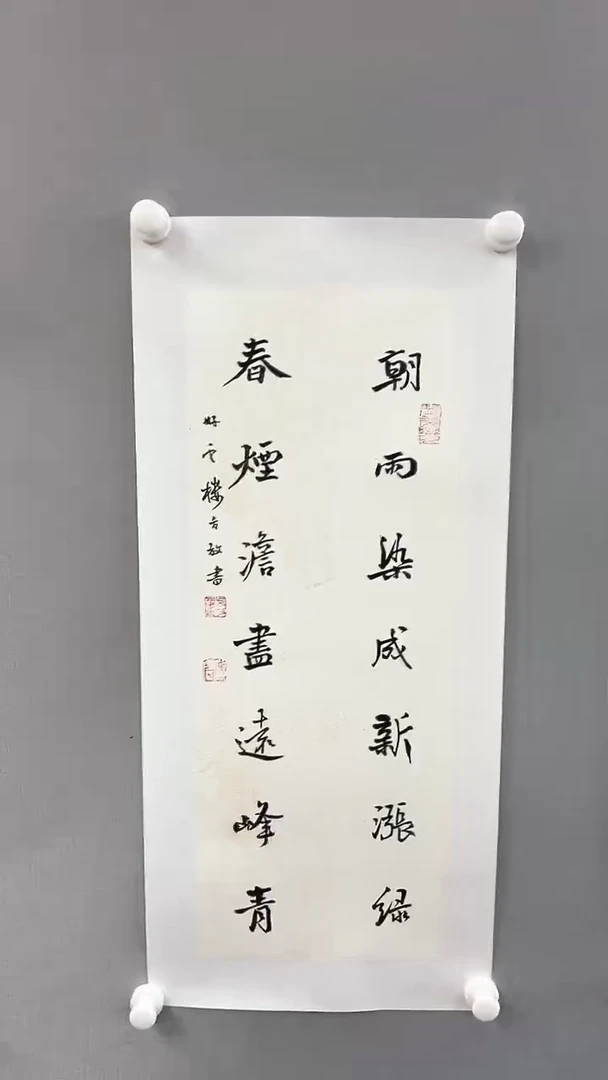 朝雨染成新漲绿
春煙澹盡遠峰青
好雲樓方放書